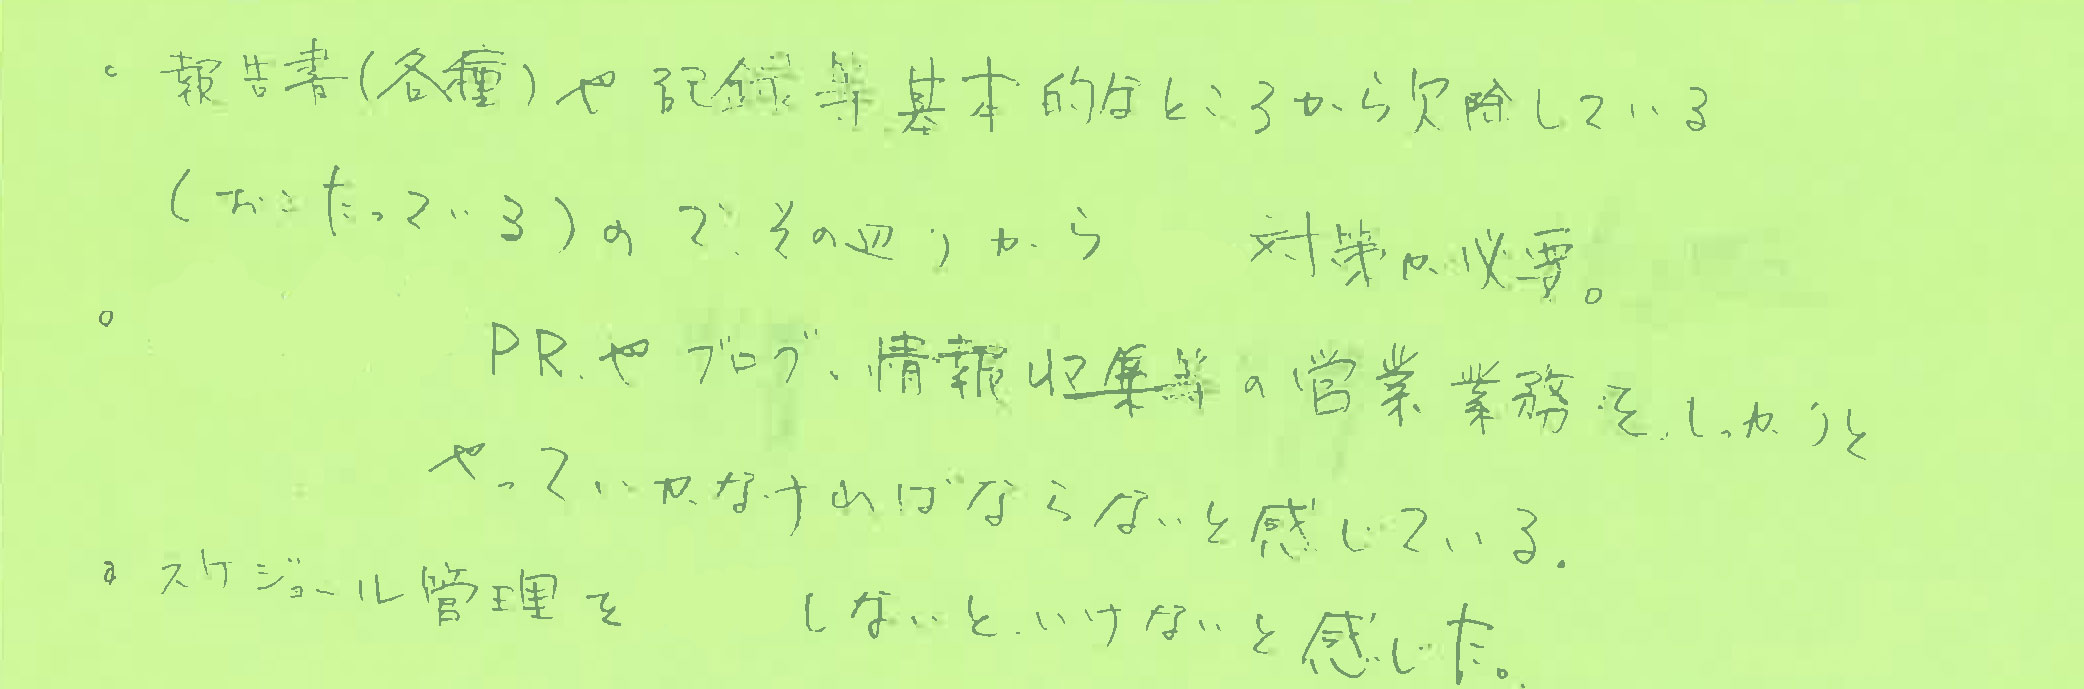 。報告書(各種)や記録等基本的なところから欠除している
(おこたっている)ので、その辺りから 対策が必要。
。 PRやブログ、情報収集等の営業業務をしっかりと
やっていかなければならないと感じている.
。スケジュール管理を しないといけないと感じた。